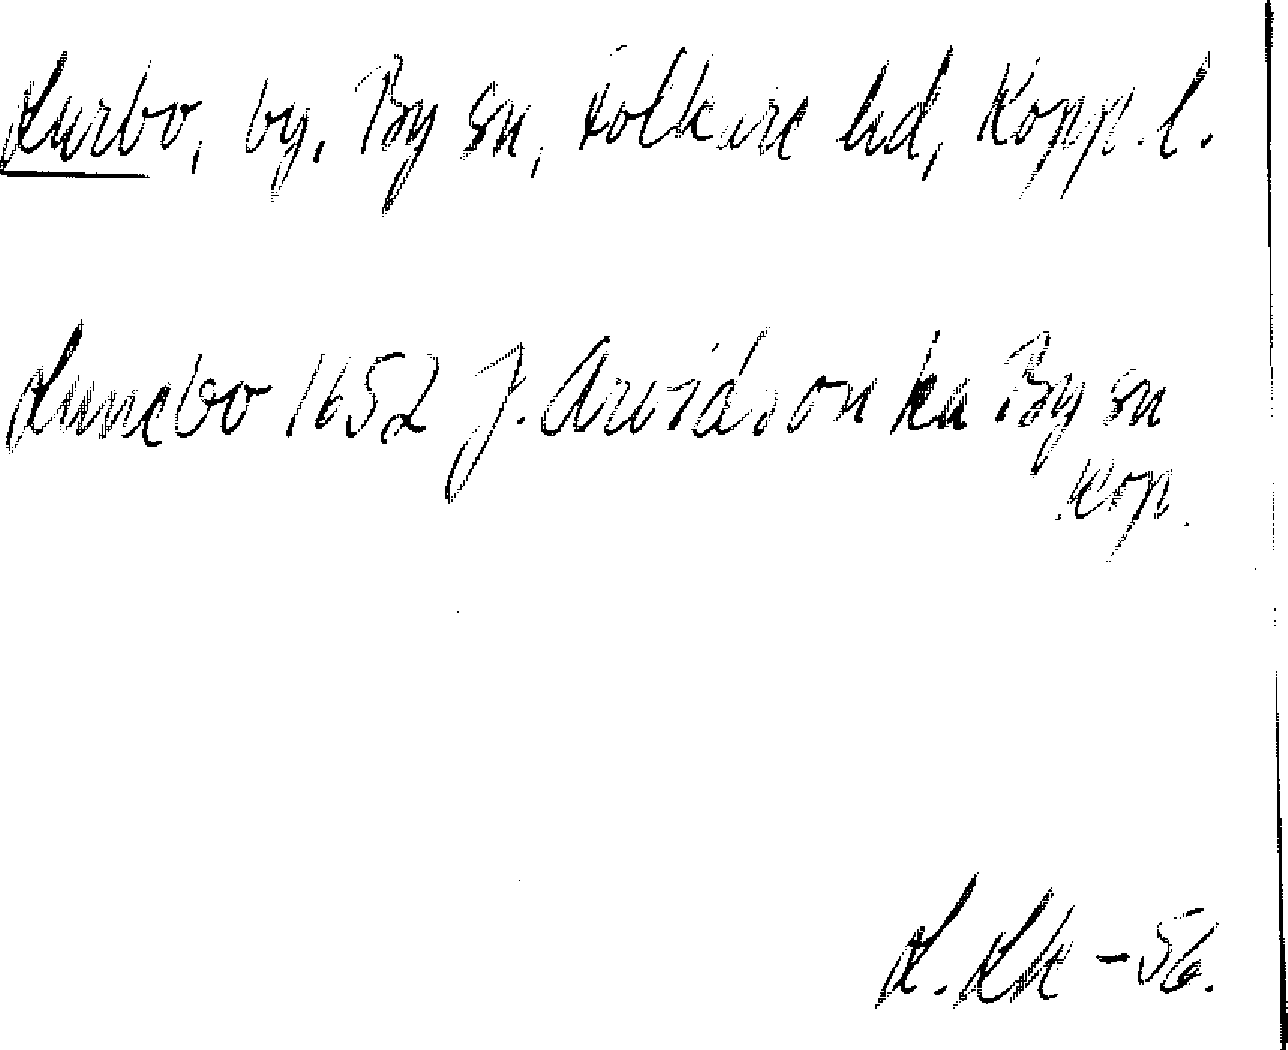 Lurbo, by, By sn, Folkare hd, Kopp. l.
Lunebo 1652 J. Arvidson ka By sn
Kop.
L. Lk - 56.